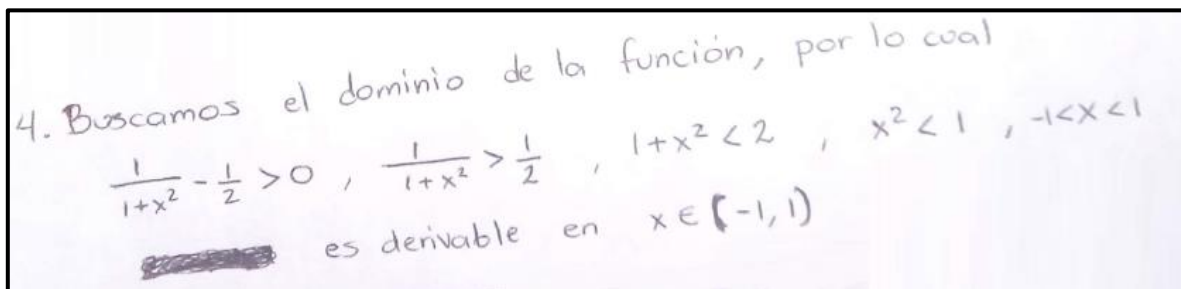 4. Buscamos el dominio de la función, por lo cual
1/(1+x²) - 1/2 > 0 , 1/(1+x²) > 1/2 , 1+x² < 2 , x² < 1 , -1<x<1
es derivable en x ∈ (-1, 1)